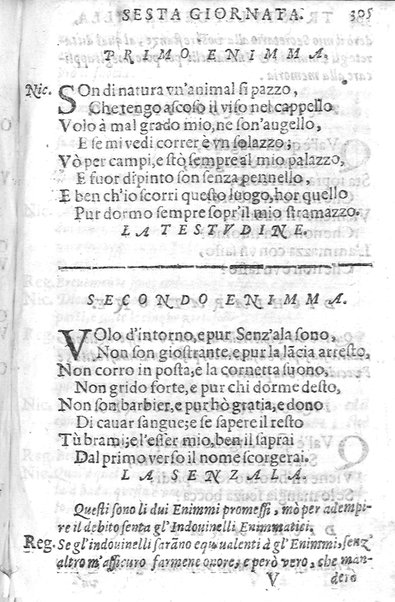 SESTA GIORNATA. 305
PRIMO ENIMMA.
Nic. SOn di natura vn'animal si pazzo,
Che tengo ascoso il viso nel cappello
Volo à mal grado mio, ne son'augello,
E se mi vedi correr è vn solazzo;
Vò per campi, e stò sempre al mio palazzo,
E fuor dipinto son senza pennello,
E ben ch'io scorri questo luogo, hor quello
Pur dormo sempre sopr'il mio stramazzo.
LA TESTVDINE.
SECONDO ENIMMA.
VOlo d'intorno, e pur Senz'ala sono,
Non son giostrante, e pur la lãcia arresto,
Non corro in posta, e la cornetta suono,
Non grido forte, e pur chi dorme desto,
Non son barbier, e pur hò gratia, e dono
Di cauar sangue; e se sapere il resto
Tù brami; e l'esser mio, ben il saprai
Dal primo verso il nome scorgerai.
LA SENZALA.
Questi sono li dui Enimmi promessi, mò per adempi-
re il debito senta gl'Indouinelli Enimmatici.
Reg. Se gl'indouinelli sarãno equiualenti à gl'Enimmi, senz'
altro m'assicuro farmene onore, e però vero, che man-
V dero